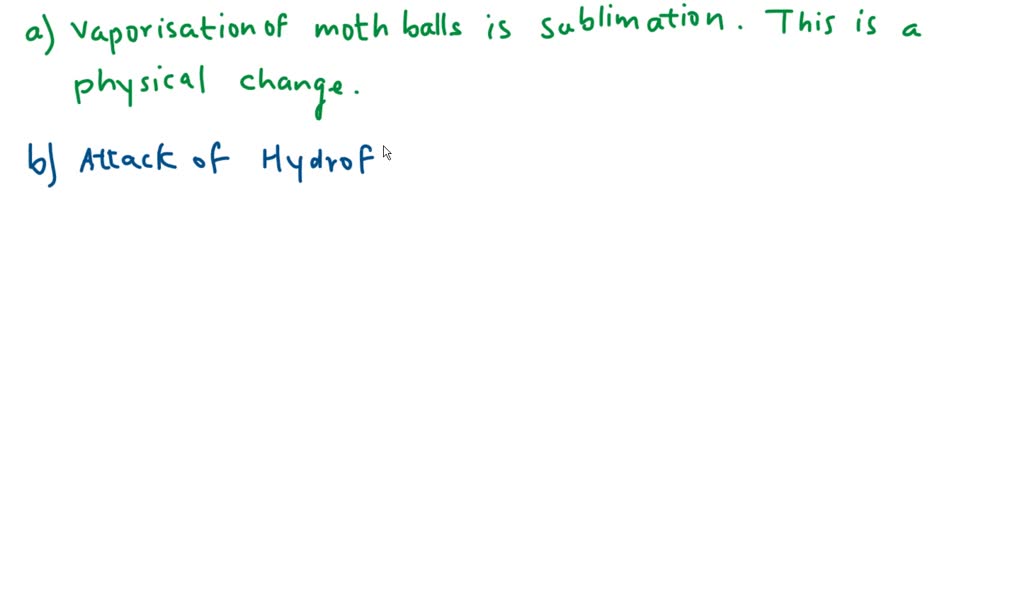 a) Vaporisation of moth balls is sublimation. This is a
physical change.
b) Attack of Hydrof